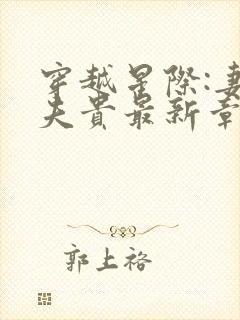 穿越星际:妻
夫贵最新章
郭上裕